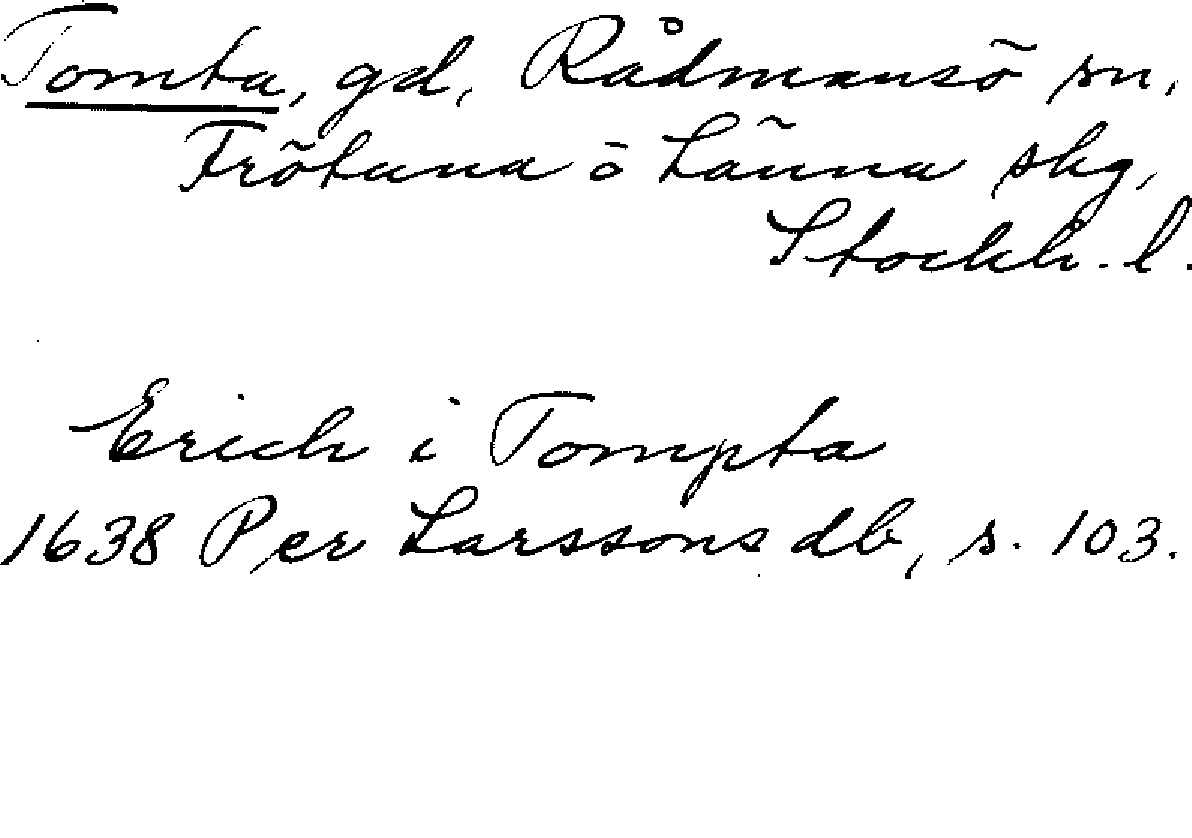 Tomta, gd, Rådmansö sn,
Frötuna o Länna skg,
Stockh. l.
Erich i Tompta
1638 Per Larssons db, s. 103.